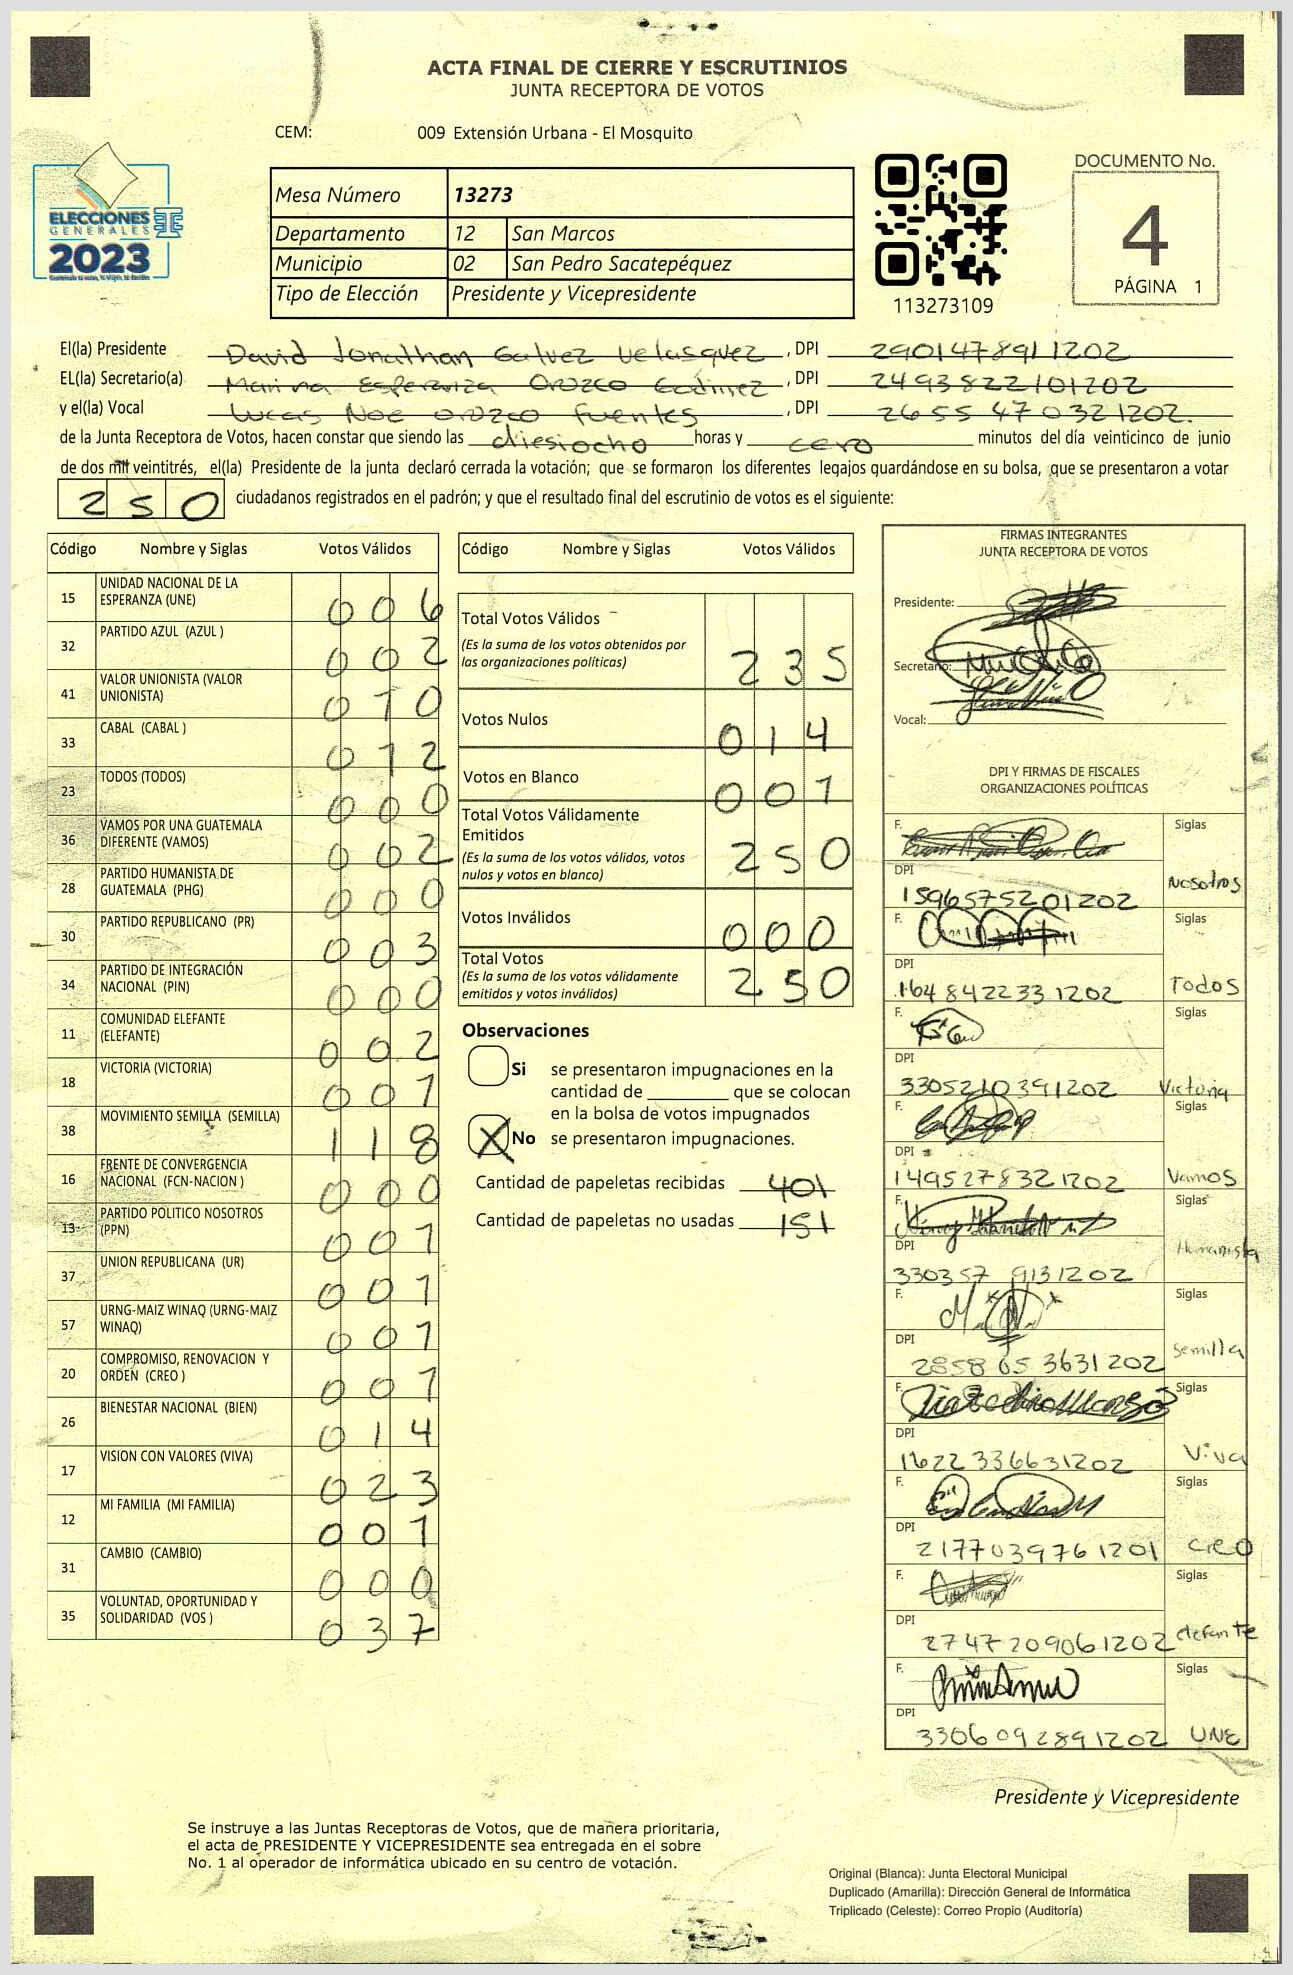 ACTA FINAL DE CIERRE Y ESCRUTINIOS
JUNTA RECEPTORA DE VOTOS
CEM: 009 Extensión Urbana - El Mosquito
ELECCIONES
GENERALES
2023
Mesa Número 13273
Departamento 12 San Marcos
Municipio 02 San Pedro Sacatepéquez
Tipo de Elección Presidente y Vicepresidente
113273109
DOCUMENTO No.
4
PÁGINA 1
El(la) Presidente David Jonathan Galvez Velasquez, DPI 2901478911202
EL(la) Secretario(a) Marina Esperanza Orozco Godinez, DPI 2493822101202
y el(la) Vocal Lucas Noe Orozco Fuentes, DPI 2655 47032 1202.
de la Junta Receptora de Votos, hacen constar que siendo las diesiocho horas y cero minutos del día veinticinco de junio
de dos mil veintitrés, el(la) Presidente de la junta declaró cerrada la votación; que se formaron los diferentes legajos guardándose en su bolsa, que se presentaron a votar
250 ciudadanos registrados en el padrón; y que el resultado final del escrutinio de votos es el siguiente:
Código Nombre y Siglas Votos Válidos
15 UNIDAD NACIONAL DE LA ESPERANZA (UNE) 006
32 PARTIDO AZUL (AZUL ) 002
41 VALOR UNIONISTA (VALOR UNIONISTA) 010
33 CABAL (CABAL ) 012
23 TODOS (TODOS) 000
36 VAMOS POR UNA GUATEMALA DIFERENTE (VAMOS) 002
28 PARTIDO HUMANISTA DE GUATEMALA (PHG) 000
30 PARTIDO REPUBLICANO (PR) 003
34 PARTIDO DE INTEGRACIÓN NACIONAL (PIN) 000
11 COMUNIDAD ELEFANTE (ELEFANTE) 002
18 VICTORIA (VICTORIA) 001
38 MOVIMIENTO SEMILLA (SEMILLA) 118
16 FRENTE DE CONVERGENCIA NACIONAL (FCN-NACION ) 000
13 PARTIDO POLITICO NOSOTROS (PPN) 001
37 UNION REPUBLICANA (UR) 001
57 URNG-MAIZ WINAQ (URNG-MAIZ WINAQ) 001
20 COMPROMISO, RENOVACION Y ORDEN (CREO ) 001
26 BIENESTAR NACIONAL (BIEN) 014
17 VISION CON VALORES (VIVA) 023
12 MI FAMILIA (MI FAMILIA) 001
31 CAMBIO (CAMBIO) 000
35 VOLUNTAD, OPORTUNIDAD Y SOLIDARIDAD (VOS ) 037
Código Nombre y Siglas Votos Válidos
Total Votos Válidos 235
(Es la suma de los votos obtenidos por
las organizaciones políticas)
Votos Nulos 014
Votos en Blanco 001
Total Votos Válidamente
Emitidos 250
(Es la suma de los votos válidos, votos
nulos y votos en blanco)
Votos Inválidos 000
Total Votos 250
(Es la suma de los votos válidamente
emitidos y votos inválidos)
Observaciones
Si se presentaron impugnaciones en la
cantidad de ________ que se colocan
en la bolsa de votos impugnados
X No se presentaron impugnaciones.
Cantidad de papeletas recibidas 401
Cantidad de papeletas no usadas 151
FIRMAS INTEGRANTES
JUNTA RECEPTORA DE VOTOS
Presidente:
Secretario:
Vocal:
DPI Y FIRMAS DE FISCALES
ORGANIZACIONES POLÍTICAS
F. Siglas
DPI 1596575201202 Nosotros
F. Siglas
DPI 1648422331202 Todos
F. Siglas
DPI 3305210391202 Victoria
F. Siglas
DPI 1495278321202 Vamos
F. Siglas
DPI 330357 9131202 Humanista
F. Siglas
DPI 2858 65 3631202 Semilla
F. Siglas
DPI 1622336631202 Viva
F. Siglas
DPI 2177039761201 Creo
F. Siglas
DPI 2747209061202 elefante
F. Siglas
DPI 3306092891202 UNE
Presidente y Vicepresidente
Se instruye a las Juntas Receptoras de Votos, que de manera prioritaria,
el acta de PRESIDENTE Y VICEPRESIDENTE sea entregada en el sobre
No. 1 al operador de informática ubicado en su centro de votación.
Original (Blanca): Junta Electoral Municipal
Duplicado (Amarilla): Dirección General de Informática
Triplicado (Celeste): Correo Propio (Auditoría)